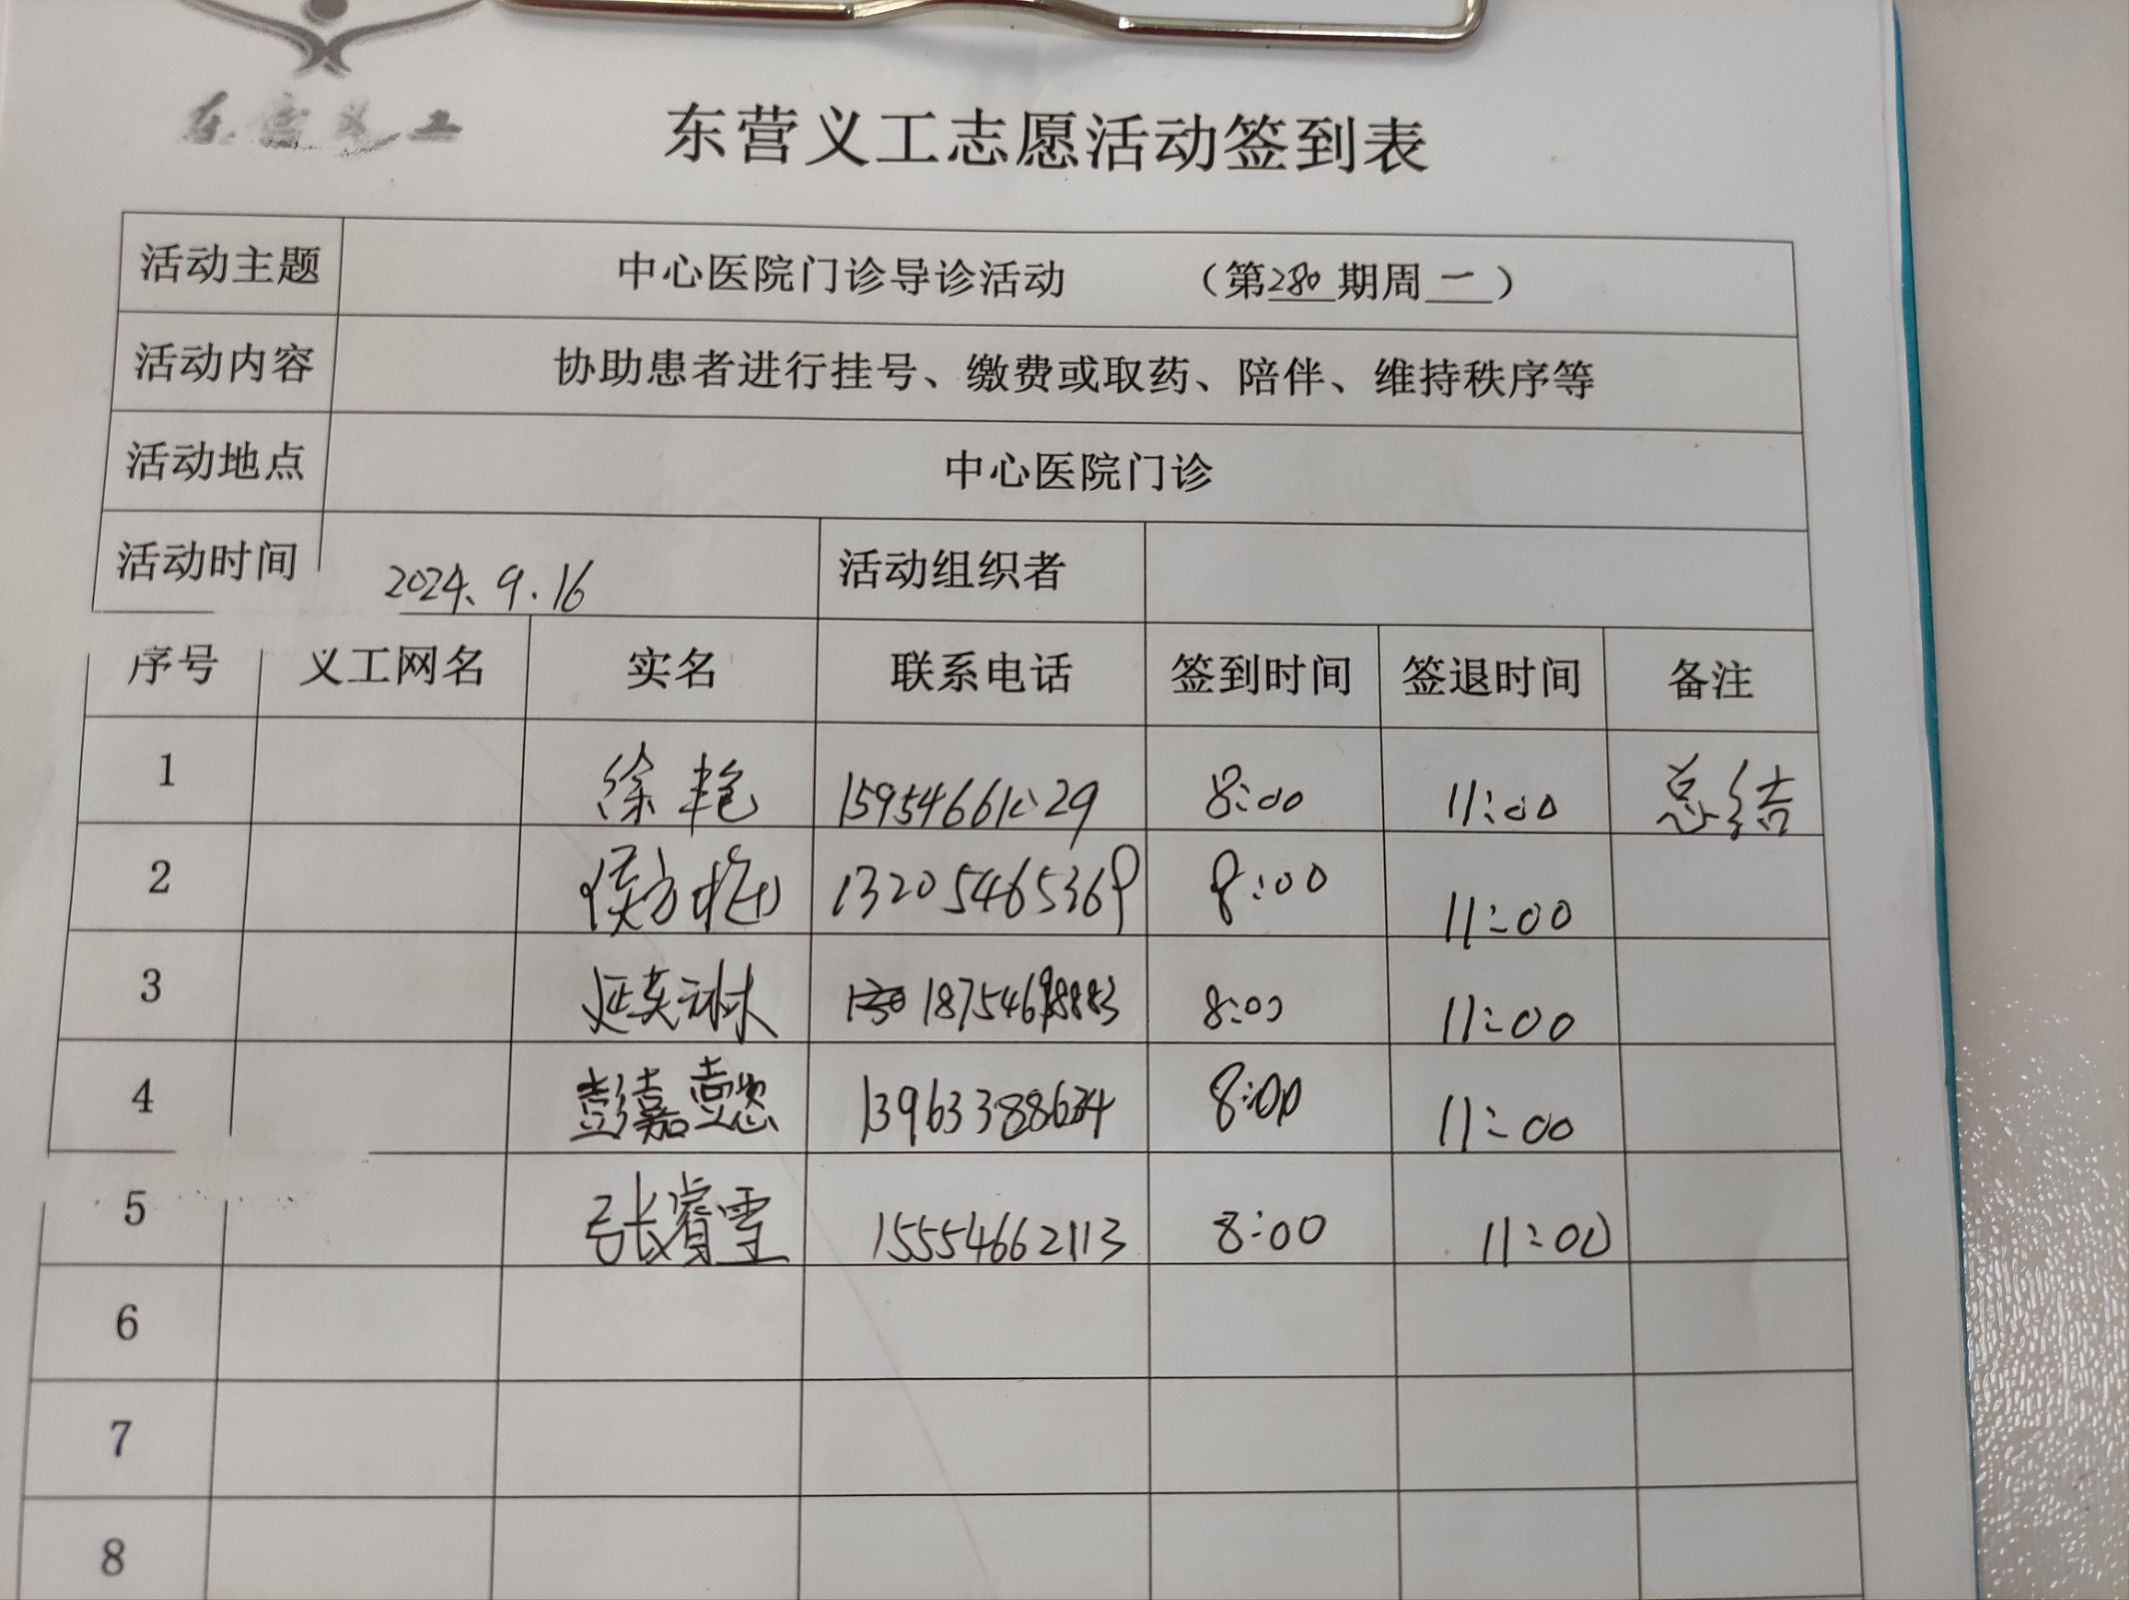 东营义工
东营义工志愿活动签到表
活动主题 中心医院门诊导诊活动 （第280期周一）
活动内容 协助患者进行挂号、缴费或取药、陪伴、维持秩序等
活动地点 中心医院门诊
活动时间 2024.9.16 活动组织者
序号 义工网名 实名 联系电话 签到时间 签退时间 备注
1 徐艳 8:00 11:00 总结
2 侯方梅 13205465369 8:00 11:00
3 延英琳 8:00 11:00
4 彭嘉懿 13963388634 8:00 11:00
5 张睿雪 15554662113 8:00 11:00
6
7
8